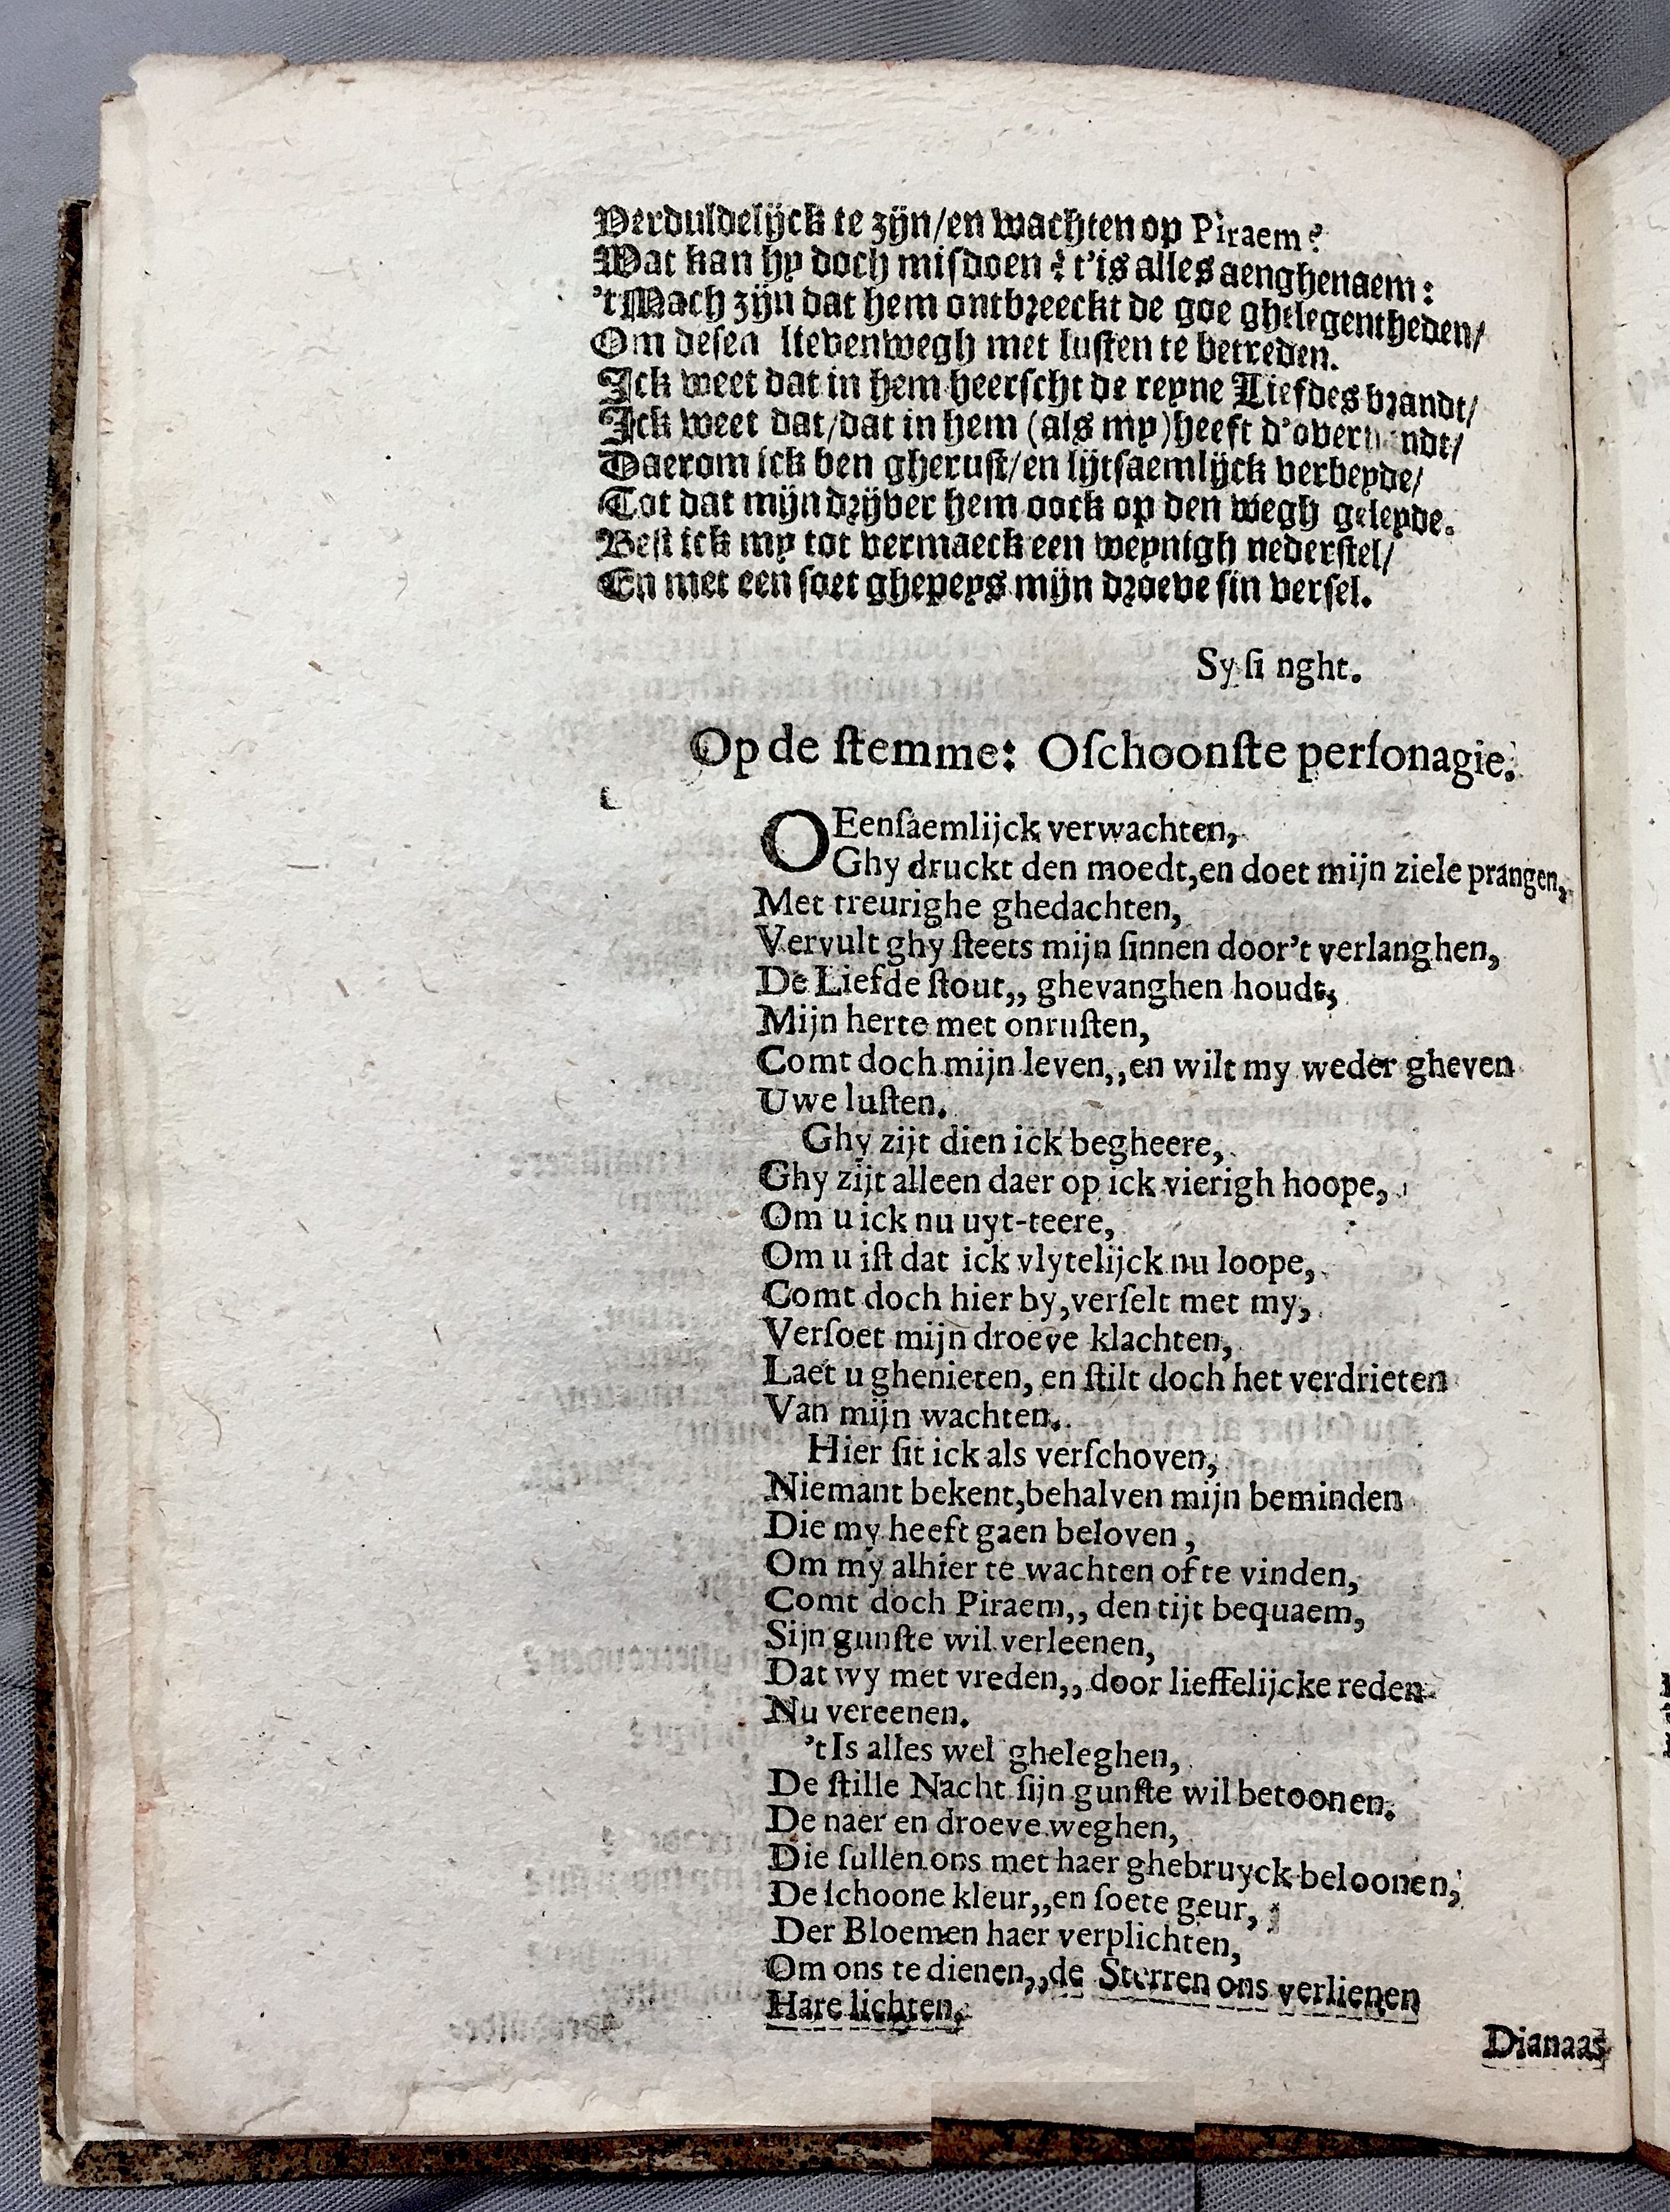 Verduldelijck te zijn/en wachten op Piraem?
Wat kan hy doch misdoen? t'is alles aenghenaem:
't Mach zijn dat hem ontbreeckt de goe ghelegentheden/
Om desen lievenwegh met lusten te betreden.
Ick weet dat in hem heerscht de reyne Liefdes brandt/
Ick weet dat/dat in hem (als my) heeft
Daerom ick ben gherust/en lijtsaemlijck verbeyde/
Tot dat mijn drijver hem oock op den wegh geleyde.
Best ick my tot vermaeck een weynigh nederstel/
En met een soet ghepeys mijn droeve sin versel.
Sy si nght.
Op de stemme: O schoonste personagie.
O Eensaemlijck verwachten,
Ghy druckt den moedt, en doet mijn ziele prangen,
Met treurighe ghedachten,
Vervult ghy steets mijn sinnen door't verlanghen,
De Liefde stout,, ghevanghen houdt,
Mijn herte met onrusten,
Comt doch mijn leven,,en wilt my weder gheven
Uwe lusten.
Ghy zijt dien ick begheere,
Ghy zijt alleen daer op ick vierigh hoope,
Om u ick nu uyt-teere,
Om u ist dat ick vlytelijck nu loope,
Comt doch hier by,verselt met my,
Versoet mijn droeve klachten,
Laet u ghenieten, en stilt doch het verdrieten
Van mijn wachten.
Hier sit ick als verschoven,
Niemant bekent,behalven mijn beminden
Die my heeft gaen beloven,
Om my alhier te wachten ofte vinden,
Comt doch Piraem,, den tijt bequaem,
Sijn gunste wil verleenen,
Dat wy met vreden,, door lieffelijcke reden
Nu vereenen.
't Is alles wel gheleghen,
De stille Nacht sijn gunste wil betoonen.
De naer en droeve weghen,
Die sullen ons met haer ghebruyck beloonen,
De schoone kleur,,en soete geur,
Der Bloemen haer verplichten,
Om ons te dienen,,de Sterren ons verlienen
Hare lichten.
Dianaas